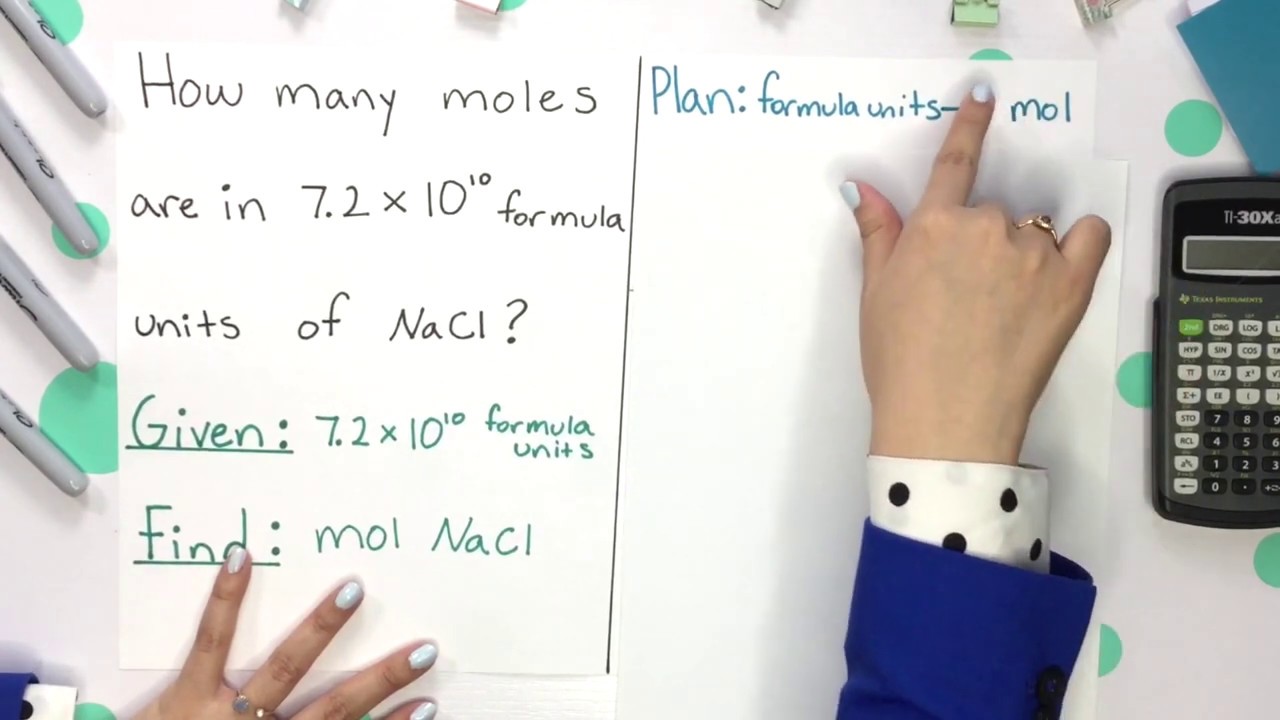 How many moles
are in 7.2 × 10¹⁰ formula
units of NaCl?
Given: 7.2 × 10¹⁰ formula units
Find: mol NaCl
Plan: formula units– mol
TI-30Xa
TEXAS INSTRUMENTS
2nd DRG LOG
HYP SIN COS
π 1/X X²
Σ+ (
STO 7 8 9
RCL 4 5 6
1 2 3
0 .